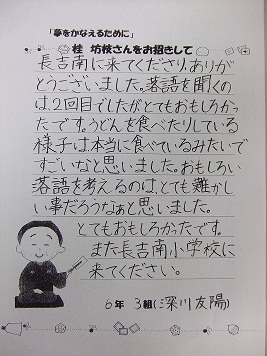 「夢をかなえるために」
桂 坊枝さんをお招きして
長吉南に来てくださり、ありが
とうございました。落語を聞くの
は2回目でしたがとてもおもしろかっ
たです。うどんを食べたりしている
様子は本当に食べているみたいで
すごいなと思いました。おもしろい
落語を考えるのは、とても難かし
い事だろうなぁと思いました。
とてもおもしろかったです。
また長吉南小学校に
来てください。
6年 3組(深川友陽)